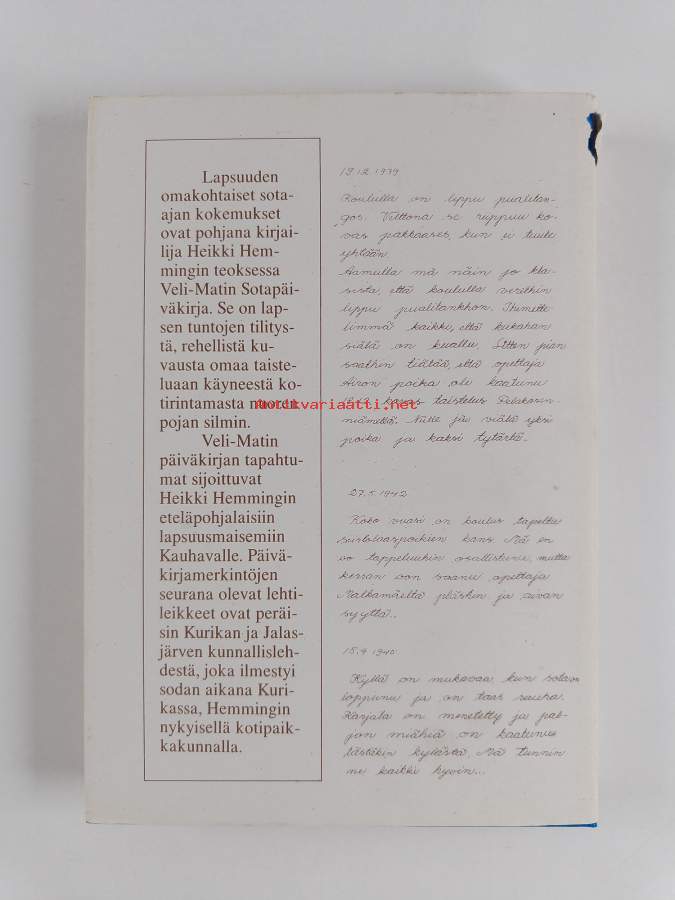 Lapsuuden
omakohtaiset sota-
ajan kokemukset
ovat pohjana kirjai-
lija Heikki Hem-
mingin teoksessa
Veli-Matin Sotapäi-
väkirja. Se on lap-
sen tuntojen tilitys-
tä, rehellistä ku-
vausta omaa taiste-
luaan käyneestä ko-
tirintamasta nuoren
pojan silmin.
Veli-Matin
päiväkirjan tapahtu-
mat sijoittuvat
Heikki Hemmingin
eteläpohjalaisiin
lapsuusmaisemiin
Kauhavalle. Päivä-
kirjamerkintöjen
seurana olevat lehti-
leikkeet ovat peräi-
sin Kurikan ja Jalas-
järven kunnallisleh-
destä, joka ilmestyi
sodan aikana Kuri-
kassa, Hemmingin
nykyisellä kotipaik-
kakunnalla.
19.12.1939
Koululla on lippu puolitan-
gos. Velttona se riippuu ko-
vas pakkases, kun ei tuule
yhtään.
Aamulla mä näin jo kla-
sista, että koululla verethin
lippu puolitankhon. Ihmette-
limmä kaikki, että kukahan
siälä on kuallu. Sitten pian
saathin tiätää, että opettaja
Airon poika ole kaatunu
kovas taistelus Pelakosen-
niämellä. Niille jäi viälä yksi
poika ja kaksi tytärtä.
27.5.1942
Koko vuasi on koulus tapeltu
poikien kans. Mä en
oo tappeluuhin osallistunu, mutta
kerran oon saanu opettaja
Malkamäeltä pläskin ja aivan
syyttä..
15.4.1940
Kyllä on mukavaa, kun sota on
loppunu ja on taas rauha.
Karjala on menetetty ja pal-
jon miähiä on kaatunu
tästäkin kylästä. Mä tunnin
ne kaikki hyvin...
Antikvariaatti.net